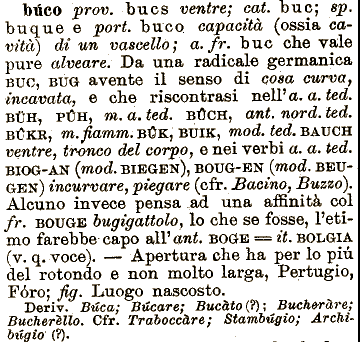 búco prov. bucs ventre; cat. buc; sp.
buque e port. buco capacità (ossia ca-
vità) di un vascello; a. fr. buc che vale
pure alveare. Da una radicale germanica
BUC, BUG avente il senso di cosa curva,
incavata, e che riscontrasi nell'a. a. ted.
BÛH, PÛH, m. a. ted. BÛCH, ant. nord. ted.
BÛKR, m. fiamm. BÛK, BUIK, mod. ted. BAUCH
ventre, tronco del corpo, e nei verbi a. a. ted.
BIOG-AN (mod. BIEGEN), BOUG-EN (mod. BEU-
GEN) incurvare, piegare (cfr. Bacino, Buzzo).
Alcuno invece pensa ad una affinità col
fr. BOUGE bugigattolo, lo che se fosse, l'eti-
mo farebbe capo all'ant. BOGE = it. BOLGIA
(v. q. voce). — Apertura che ha per lo piú
del rotondo e non molto larga, Pertugio,
Fóro; fig. Luogo nascosto.
Deriv. Búca; Búcare; Bucàto (?); Bucheràre;
Bucherèllo. Cfr. Traboccàre; Stambúgio; Archi-
búgio (?).